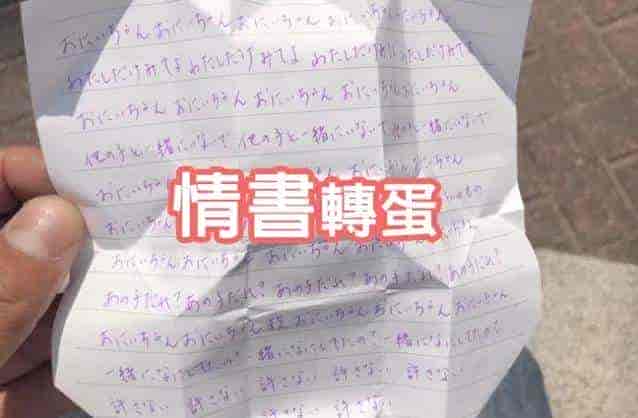 おにいちゃん おにいちゃん おにいちゃん おにいちゃん おにいちゃん
わたしだけみてよ わたしだけみてよ わたしだけみてよ わたしだけみてよ
おにいちゃん おにいちゃん おにいちゃん おにいちゃん おにいちゃん
他の子と一緒にいないで 他の子と一緒にいないで 他の子と一緒にいないで
おにいちゃん おにいちゃん
情書轉蛋
おにいちゃん おにいちゃん おにいちゃん おにいちゃん
あの子だれ？あの子だれ？あの子だれ？あの子だれ？あの子だれ？
おにいちゃん おにいちゃん おにいちゃん おにいちゃん おにいちゃん
許さない 許さない 許さない 許さない
許さない 許さない 許さない 許さない